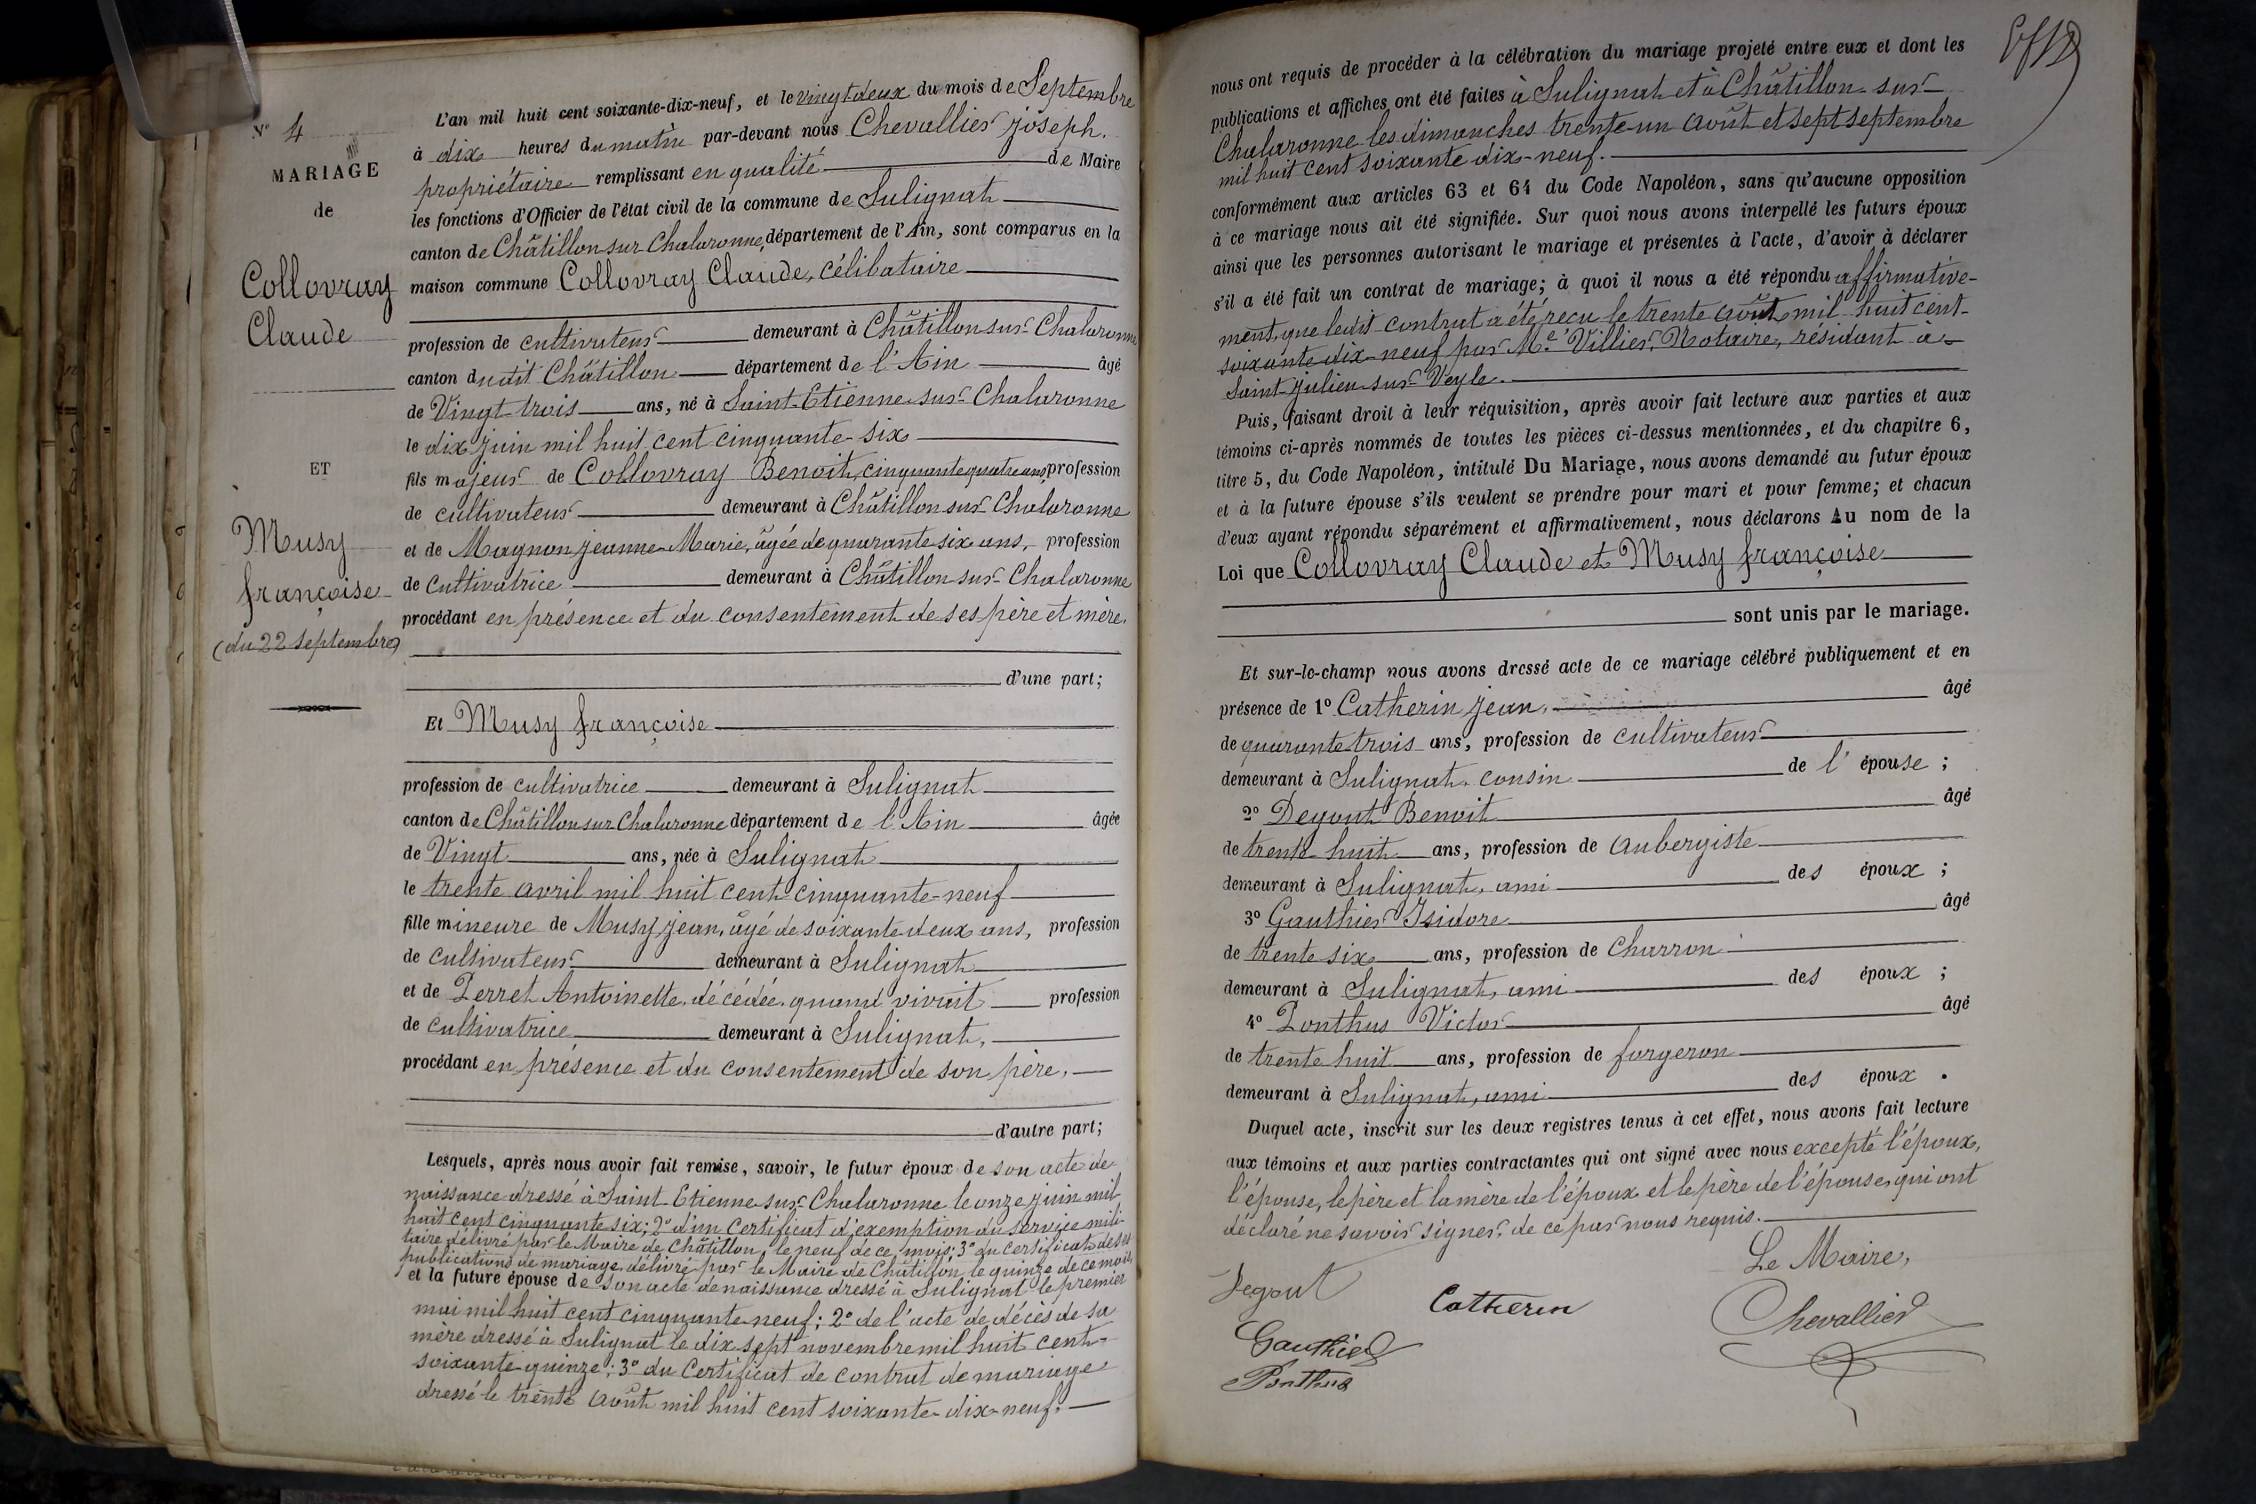 N° 4
MARIAGE
de
Collovray
Claude
ET
Musy
françoise
(du 22 septembre)
L'an mil huit cent soixante-dix-neuf, et le vingt deux du mois de Septembre
à dix heures du matin par-devant nous Chevallier joseph.
propriétaire remplissant en qualité de Maire
les fonctions d'Officier de l'état civil de la commune de Sulignat
canton de Châtillon sur Chalaronne, département de l'Ain, sont comparus en la
maison commune Collovray Claude, célibataire
profession de cultivateur demeurant à Châtillon sur Chalaronne
canton dudit Châtillon département de l'Ain âgé
de Vingt trois ans, né à Saint-Etienne sur Chalaronne
le dix juin mil huit cent cinquante-six
fils majeur de Collovray Benoit, cinquante quatre ans, profession
de cultivateur demeurant à Châtillon sur Chalaronne
et de Magnon jeanne Marie, âgée de quarante six ans, profession
de cultivatrice demeurant à Châtillon sur Chalaronne
procédant en présence et du consentement de ses père et mère.
d'une part;
Et Musy françoise
profession de cultivatrice demeurant à Sulignat
canton de Châtillon sur Chalaronne département de l'Ain âgée
de Vingt ans, née à Sulignat
le trente avril mil huit cent cinquante-neuf
fille mineure de Musy jean, âgé de soixante deux ans, profession
de cultivateur demeurant à Sulignat
et de Perret Antoinette, décédée, quand vivait profession
de cultivatrice demeurant à Sulignat,
procédant en présence et du consentement de son père,
d'autre part;
Lesquels, après nous avoir fait remise, savoir, le futur époux de son acte de
naissance dressé à Saint-Etienne sur Chalaronne le onze juin mil
huit cent cinquante six; 2° d'un Certificat d'exemption du service mili-
taire délivré par le Maire de Châtillon, le neuf de ce mois; 3° du certificat de ses
publications de mariage délivré par le Maire de Châtillon le quinze de ce mois,
et la future épouse de son acte de naissance dressé à Sulignat le premier
mai mil huit cent cinquante-neuf; 2° de l'acte de décès de sa
mère dressé à Sulignat le dix sept novembre mil huit cent-
soixante-quinze; 3° du Certificat de contrat de mariage
dressé le trente août mil huit cent soixante-dix-neuf.
nous ont requis de procéder à la célébration du mariage projeté entre eux et dont les
publications et affiches ont été faites à Sulignat et à Châtillon-sur-
Chalaronne les dimanches trente-un août et sept septembre
mil huit cent soixante dix-neuf.
conformément aux articles 63 et 64 du Code Napoléon, sans qu'aucune opposition
à ce mariage nous ait été signifiée. Sur quoi nous avons interpellé les futurs époux
ainsi que les personnes autorisant le mariage et présentes à l'acte, d'avoir à déclarer
s'il a été fait un contrat de mariage; à quoi il nous a été répondu affirmative-
ment, que ledit contrat a été reçu le trente août mil huit cent-
soixante dix-neuf par Me Villier, Notaire, résidant à
Saint-julien-sur-Veyle.
Puis, faisant droit à leur réquisition, après avoir fait lecture aux parties et aux
témoins ci-après nommés de toutes les pièces ci-dessus mentionnées, et du chapitre 6,
titre 5, du Code Napoléon, intitulé Du Mariage, nous avons demandé au futur époux
et à la future épouse s'ils veulent se prendre pour mari et pour femme; et chacun
d'eux ayant répondu séparément et affirmativement, nous déclarons Au nom de la
Loi que Collovray Claude et Musy françoise
sont unis par le mariage.
Et sur-le-champ nous avons dressé acte de ce mariage célébré publiquement et en
présence de 1° Catherin jean, âgé
de quarante trois ans, profession de cultivateur
demeurant à Sulignat, cousin de l'épouse;
2° Degout Benoit âgé
de trente-huit ans, profession de Aubergiste
demeurant à Sulignat, ami des époux;
3° Gauthier Isidore âgé
de trente six ans, profession de Charron
demeurant à Sulignat, ami des époux;
4° Ponthus Victor âgé
de trente huit ans, profession de forgeron
demeurant à Sulignat, ami des époux.
Duquel acte, inscrit sur les deux registres tenus à cet effet, nous avons fait lecture
aux témoins et aux parties contractantes qui ont signé avec nous excepté l'époux,
l'épouse, le père et la mère de l'époux et le père de l'épouse, qui ont
déclaré ne savoir signer, de ce par nous requis.
Le Maire,
Degout Catherin Chevallier
Gauthier
Ponthus